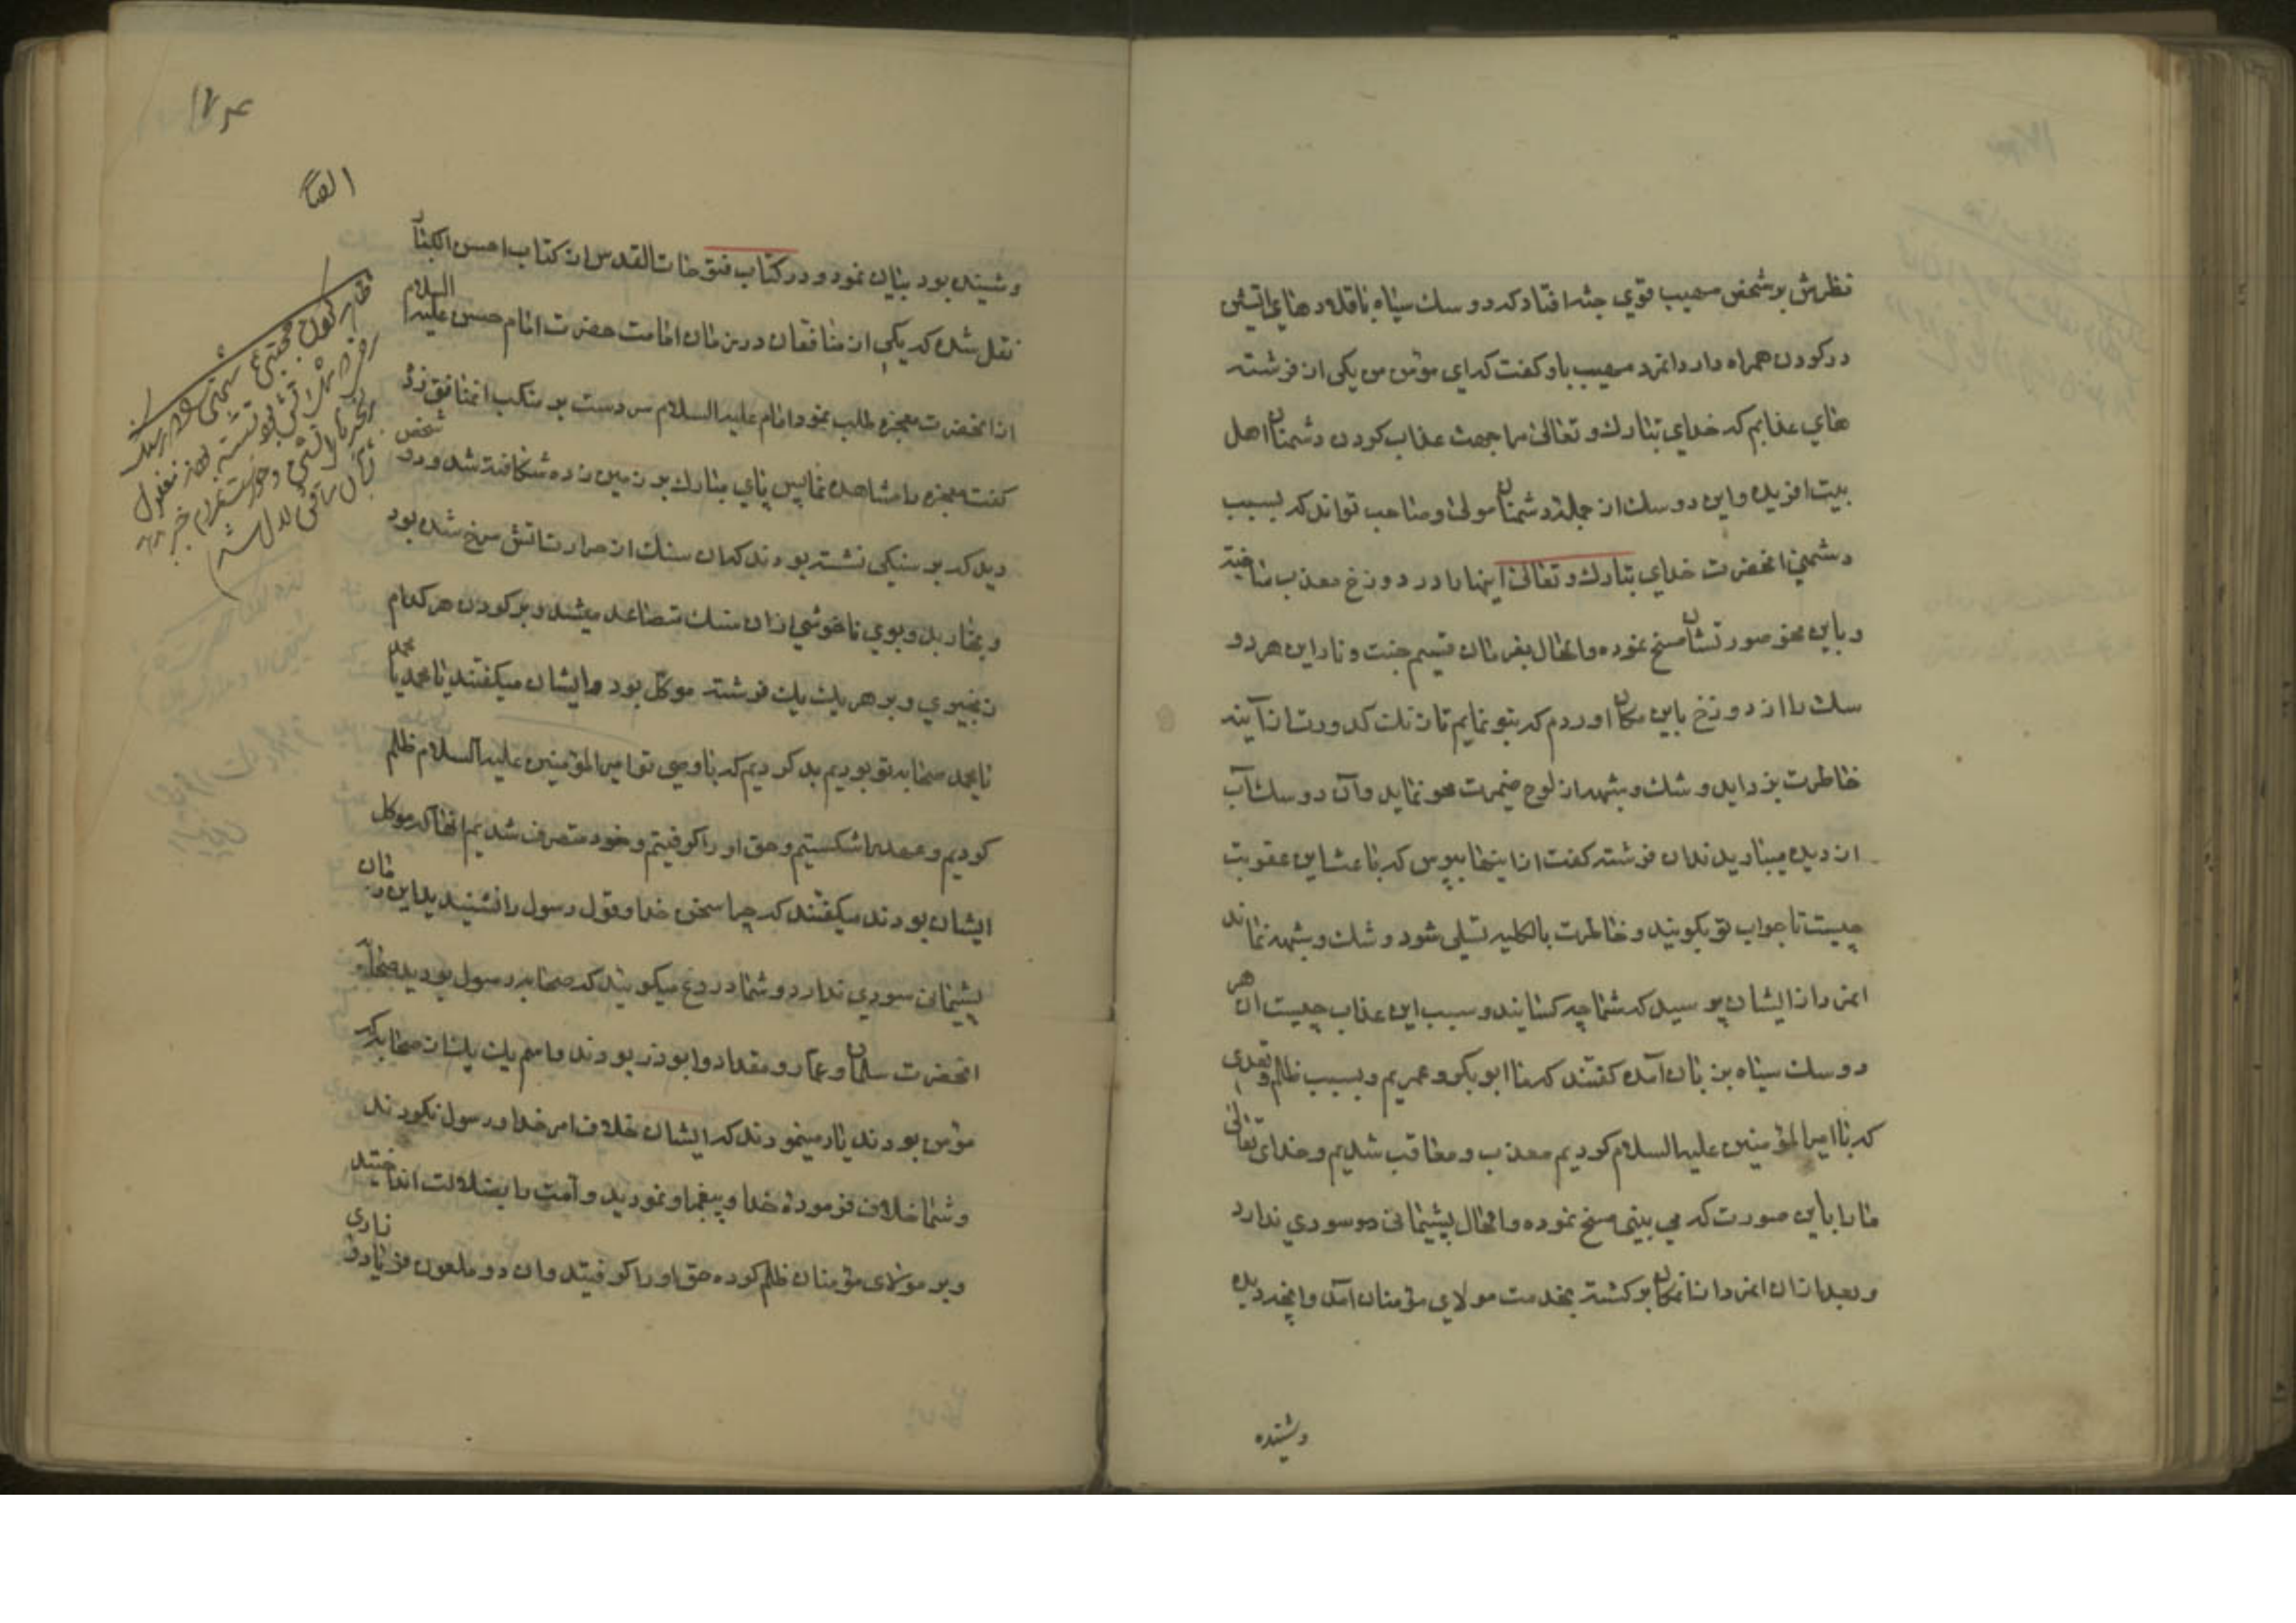 نظرش بر شخص مهیب قوي جثه افتاد که دو سك سیاه با قلادهاي اتشین
در کردن همراه دارد انمرد مهیب باو کفت که اي مؤمن من یکی از فرشته
هاي عذابم که خداي تبارك و تعالی مرا جهت عذاب کردن دشمنان اهل
بیت افریده و این دو سك از جمله دشمنان مولی و صاحب تواند که بسبب
دشمني انحضرت خداي تبارك و تعالی اینها را در دوزخ معذب ساخته
و باین نحو صورتشان مسخ نموده و الحال بفرمان قسیم جنت و نار این هر دو
سك را از دوزخ باین مکان اوردم که بتو نمایم تا زنك کدورت از آینه
خاطرت بزداید و شك و شبهه از لوح ضمیرت محو نماید و آن دو سك آب
از دیده میباریدند ان فرشته کفت از اینها بپرس که باعث این عقوبت
چیست تا جواب تو بکویند و خاطرت بالکلیه تسلی شود و شك و شبهه نماند
انمرد از ایشان پرسید که شما چه کسانید و سبب این عذاب چیست ان هر
دو سك سیاه بزبان آمده کفتند که ما ابوبکر و عمریم و بسبب ظلم و تعدی
که با امیر المؤمنین علیه السلام کردیم معذب و معاقب شدیم و خدای تعالی
ما را باین صورت که می بینی مسخ نموده و الحال پشیمانی سودي ندارد
و بعد از ان انمرد از انمکان برکشته بخدمت مولاي مؤمنان آمد و انچه دیده
وشنیده
۱۷۴
ایضا
و شنیده بود بیان نمود و در کتاب فتوحات القدس از کتاب احسن الکبار
نقل شده که یکی از منافقان در زمان امامت حضرت امام حسن علیه السلام
از انحضرت معجزه طلب نمود امام علیه السلام دست بر منکب انمنافق زد
کفت معجزه را مشاهده نما پس پاي مبارك بر زمین زد شکافته شد و دو شخص
دید که بر سنکی نشسته بودند که ان سنك از حرارت اتش سرخ شده بود
و بخار بد و بوي ناخوشي از ان سنك متصاعد میشد و بر کردن هر کدام
زنجیري و بر هر یك یك فرشته موکل بود و ایشان میکفتند یا محمد یا محمد
یا محمد صحابه تو بودیم بد کردیم که با وصی تو امیر المؤمنین علیه السلام ظلم
کردیم و عهد را شکستیم و حق او را کرفتیم و خود متصرف شدیم انها که موکل
ایشان بودند میکفتند که چرا سخن خدا و قول رسول را نشنیدید این زمان
پشیمانی سودي ندارد و شما دروغ میکویند که صحابه رسول بودید صحابه
انحضرت سلمان و عمار و مقداد و ابوذر بودند و اسم یك یك از صحابه که
مؤمن بودند یاد مینمودند که ایشان خلاف امر خدا و رسول نکردند
و شما خلاف فرمودۀ خدا و پیغمبر او نمودید و امت را بضلالت انداختید
و بر مولاي مؤمنان ظلم کرده حق او را کرفتید و ان دو ملعون فریاد و زاری